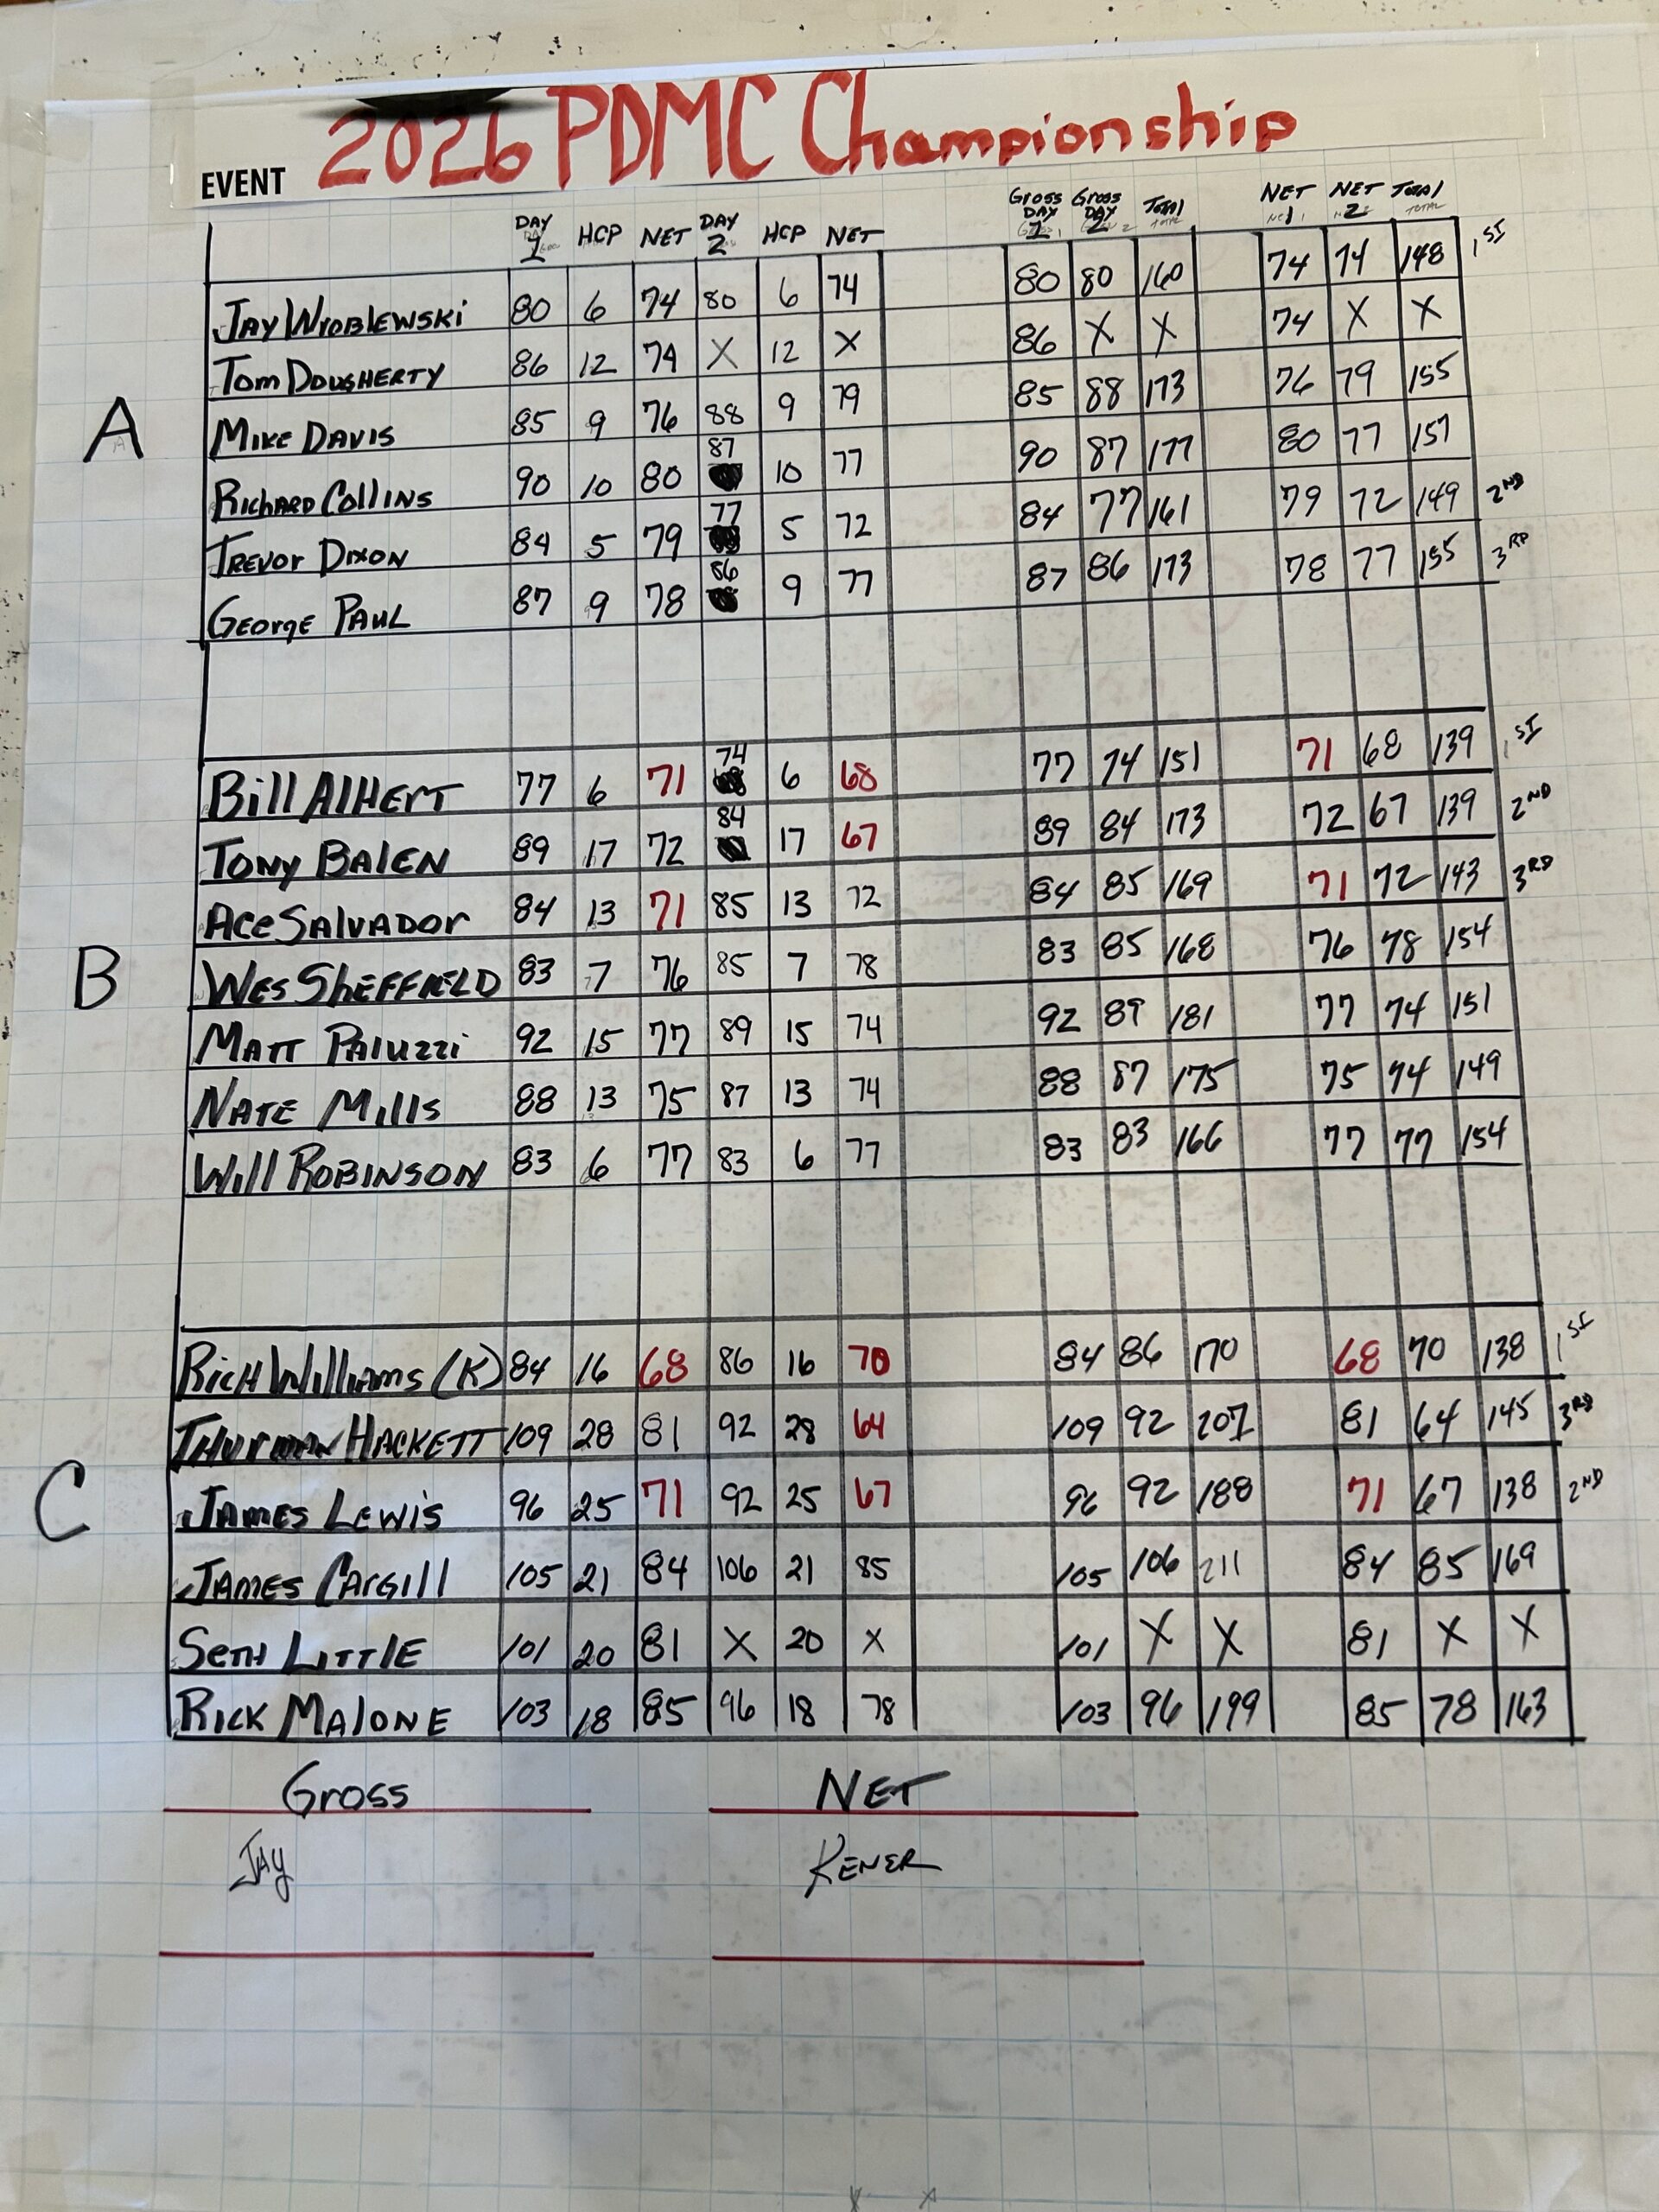 EVENT 2026 PDMC Championship
DAY 1 HCP NET DAY 2 HCP NET Gross DAY 1 Gross DAY 2 Total NET 1 NET 2 Total
A
JAY WroBlEWSKi 80 6 74 80 6 74 80 80 160 74 74 148 1ST
Tom DOUGHERTY 86 12 74 X 12 X 86 X X 74 X X
MIKE DAVIS 85 9 76 88 9 79 85 88 173 76 79 155
RichARD Collins 90 10 80 87 10 77 90 87 177 80 77 157
TrEVOr DIXON 84 5 79 77 5 72 84 77 161 79 72 149 2ND
GEOrge PAUL 87 9 78 86 9 77 87 86 173 78 77 155 3RD
B
Bill AlHErT 77 6 71 74 6 68 77 74 151 71 68 139 1ST
TONY BAlEN 89 17 72 84 17 67 89 84 173 72 67 139 2ND
ACE SAlVADOr 84 13 71 85 13 72 84 85 169 71 72 143 3RD
WES ShEFFIELD 83 7 76 85 7 78 83 85 168 76 78 154
MATT PAluzzi 92 15 77 89 15 74 92 89 181 77 74 151
NATE Mills 88 13 75 87 13 74 88 87 175 75 74 149
Will ROBINSON 83 6 77 83 6 77 83 83 166 77 77 154
C
RicH Williams (K) 84 16 68 86 16 70 84 86 170 68 70 138 1ST
THurmAN HACKETT 109 28 81 92 28 64 109 92 201 81 64 145 3RD
JAMES LEWIS 96 25 71 92 25 67 96 92 188 71 67 138 2ND
JAMES CArGill 105 21 84 106 21 85 105 106 211 84 85 169
SETH LITTlE 101 20 81 X 20 X 101 X X 81 X X
RICK MAlONE 103 18 85 96 18 78 103 96 199 85 78 163
Gross NET
JAY KENER